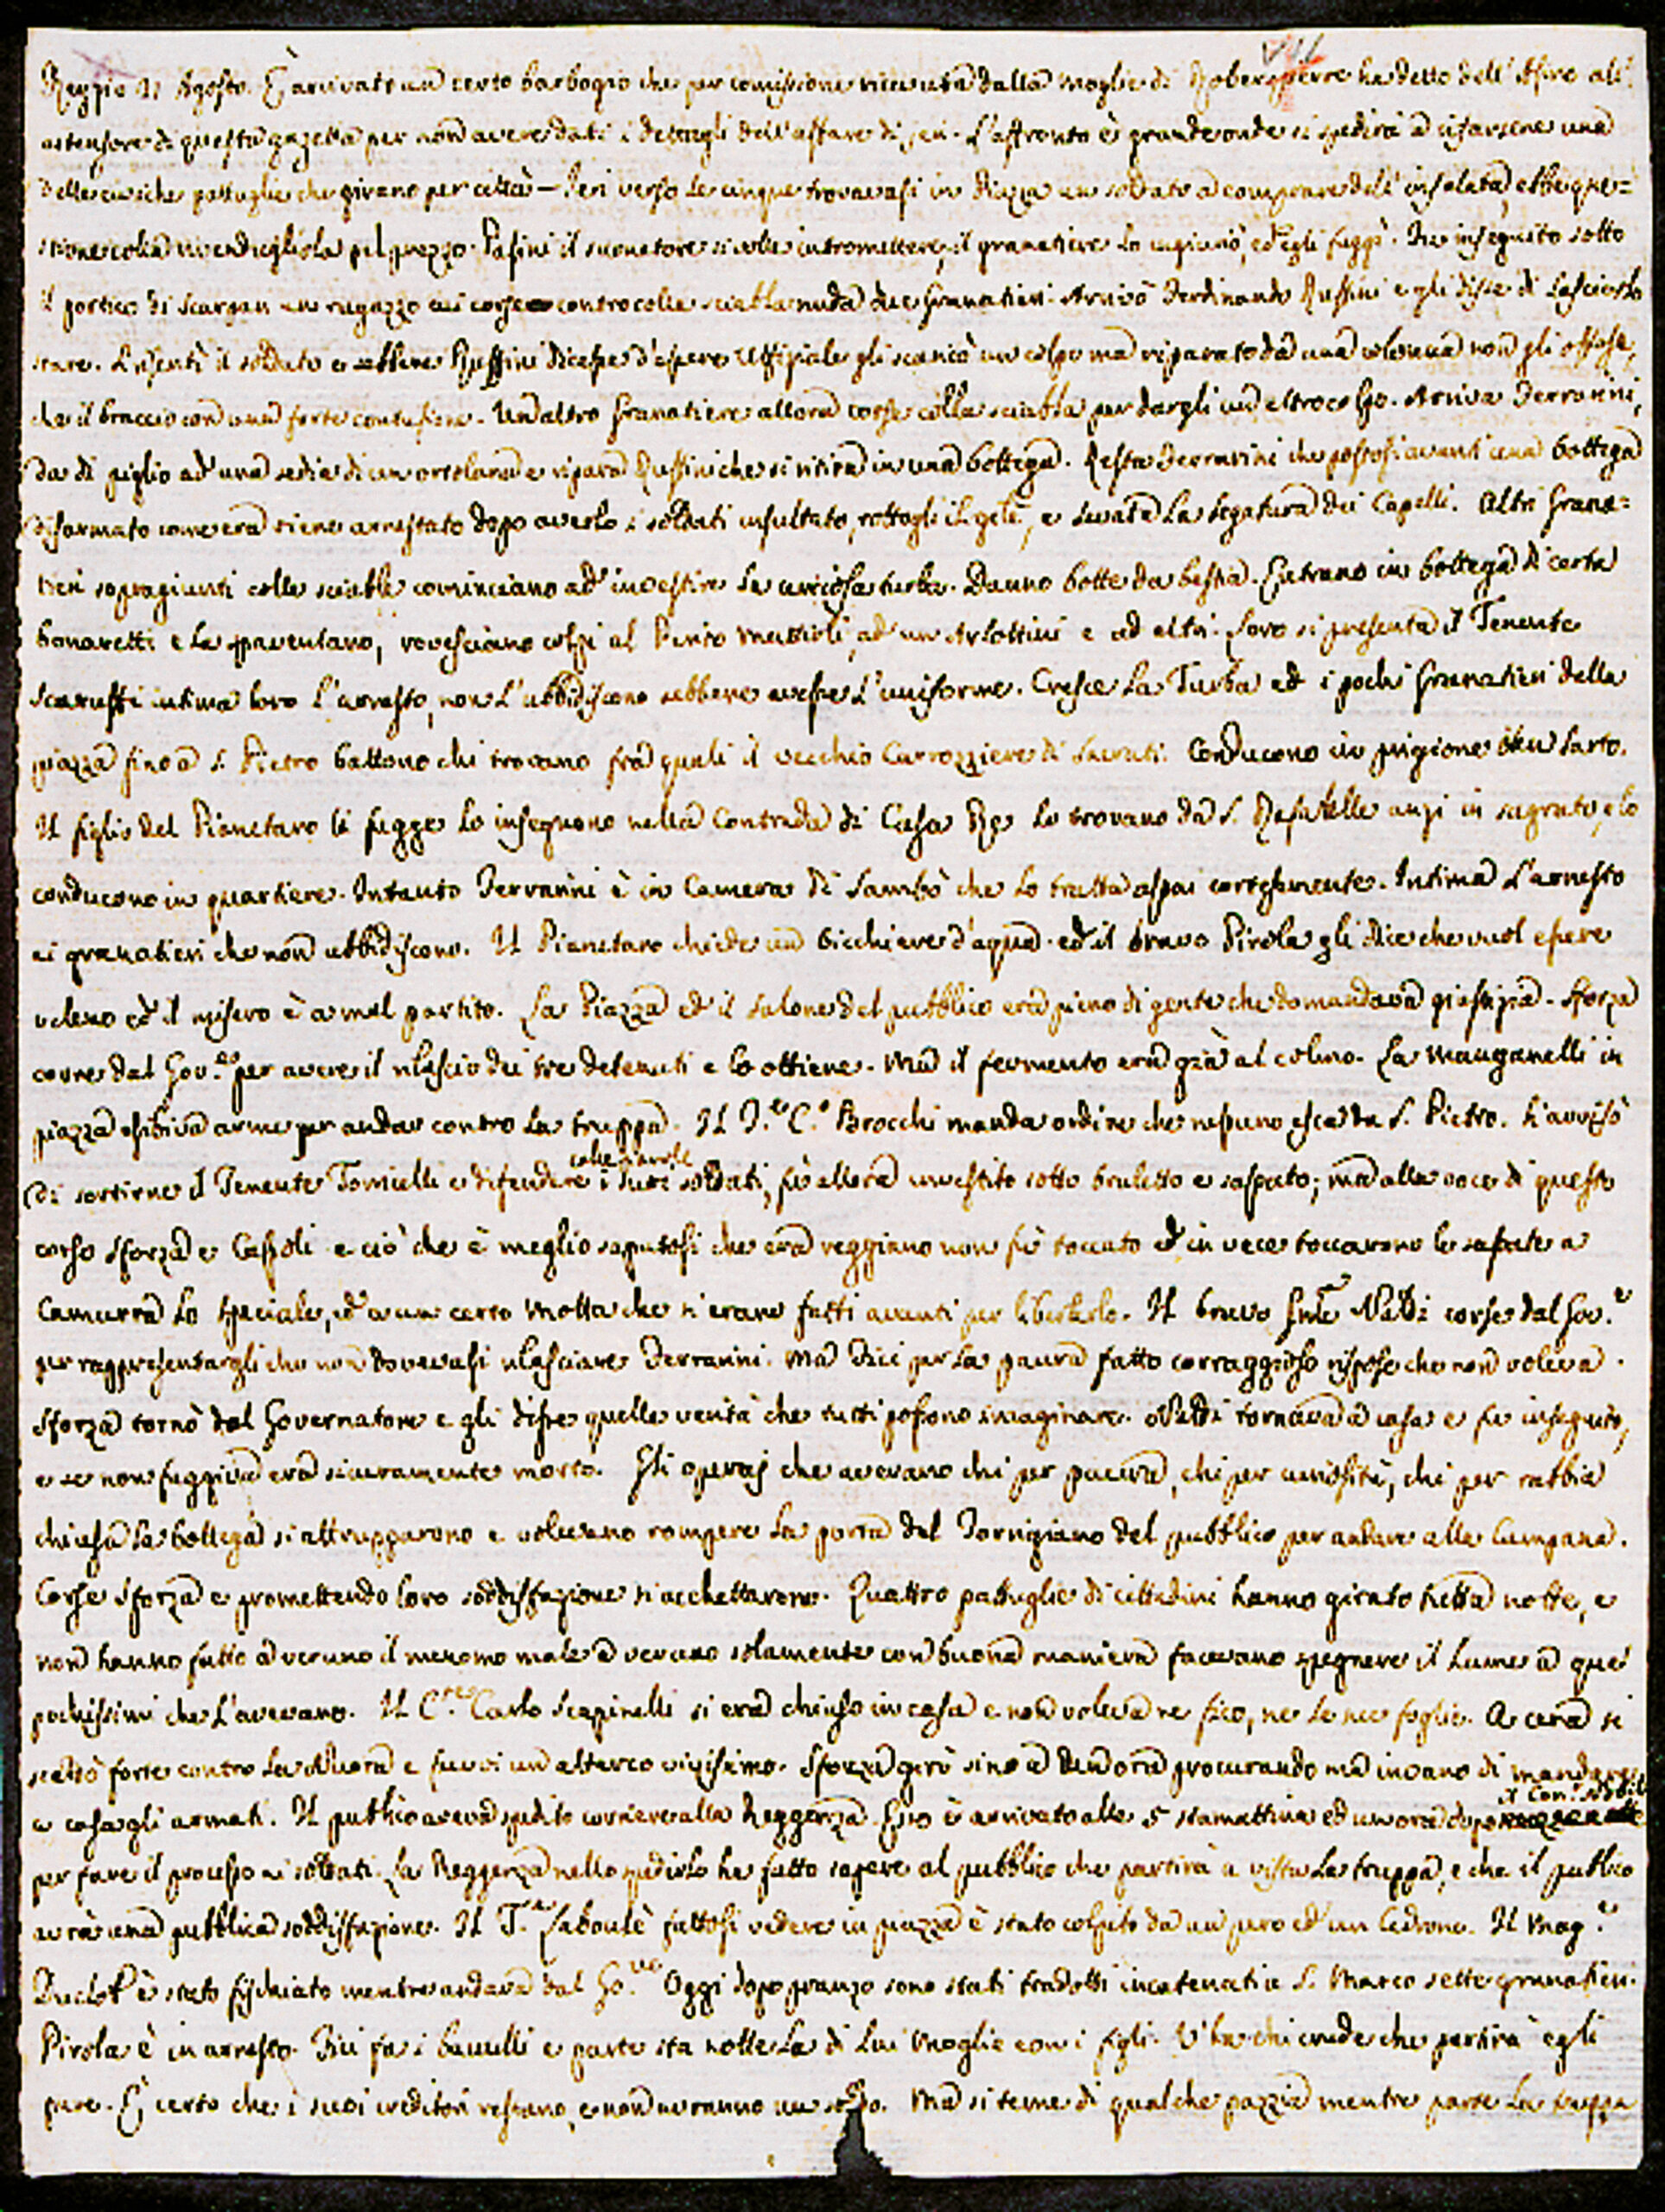 Reggio 21 Agosto. È arrivato un certo barbogio che per comissione ricevuta dalla moglie di Roberspierre ha detto dell'Asino all'
estensore di questa gazetta per non avere dati i dettagli dell'affare di jeri. L'affronto è grande onde si spedirà a rifarsene una
delle civiche pattuglie che girano per città — Jeri verso le cinque trovavasi in Piazza un soldato a comprare dell'insalata, ebbe que=
stione colla rivendugliola pel prezzo. Pasini il suonatore si volle intromettere, il granatiere lo ingiuriò, ed egli fuggì. Fu inseguito sotto
il portico di Scargan un ragazzo cui corsero contro colla sciabla nuda due Granatieri. Arrivò Ferdinando Ruffini e gli disse di lasciarlo
stare. Risentì il soldato e sebbene Ruffini dicesse d'essere Uffiziale gli scaricò un colpo ma riparato da una colonna non gli offese,
che il braccio con una forte contusione. Un altro Granatiere allora corse colla sciabla per dargli un altro colpo. Arriva Ferrarini,
da di piglio ad una sedia di un ortolano e ripara Ruffini che si ritira in una bottega. Resta Ferrarini che postosi avanti una bottega
disarmato come era viene arrestato dopo averlo i soldati insultato, rottogli il gilè, e levata la legatura dei Capelli. Altri Grana=
tieri sopragiunti colle sciable cominciano ad investire la curiosa turba. Danno botte da bestia. Entrano in bottega di certa
Bonaretti e la spaventano, rovesciano colpi al Perito Mattioli, ad un Arlottini e ad altri. Loro si presenta il Tenente
Scaruffi intima loro l'arresto, non l'ubbidiscono sebbene avesse l'uniforme. Cresce la Turba ed i pochi Granatieri della
piazza fino a S. Pietro battono chi trovano frà quali il vecchio Carrozziere di Sacrati. Conducono in prigione un Sarto.
Il figlio del Pianetaro li fugge lo inseguono nella Contrada di Casa Re lo trovano da S. Rafaelle anzi in sagrato, e lo
conducono in quartiere. Intanto Ferrarini è in Camera di Sambò che lo tratta assai cortesemente. Intima l'arresto
ai granatieri che non ubbidiscono. Il Pianetaro chiede un bicchiere d'aqua ed il bravo Pirola gli dice che vuol essere
veleno ed il misero è a mal partito. La Piazza ed il salone del pubblico era pieno di gente che domandava giustizia. Sforza
corre dal Gov.re per avere il rilascio dei tre detenuti e lo ottiene. Ma il fermento era già al colmo. La Manganelli in
piazza esibiva arme per andar contro la truppa. Il T.e C.o Brocchi manda ordine che nessuno esca da S. Pietro. L'avvisò
di sortirne il Tenente Tornielli e difendere colle parole i suoi soldati, fù allora investito sotto broletto e sassato; ma alla voce di questo
corso Sforza e Caspoli e ciò che è meglio saputosi che era reggiano non fù toccato ed in vece toccarono le sassate a
Camurra lo speciale, ed a un certo Motta che si erano fatti avanti per liberarlo. Il bravo Naldi corse dal Gov.e
per rappresentargli che non dovevasi rilasciare Ferrarini. Ma Dici per la paura fatto corraggioso rispose che non voleva.
Sforza tornò dal Governatore e gli disse quelle verità che tutti possono imaginare. Naldi tornava a casa e fu inseguito,
e se non fuggiva era sicuramente morto. Gli operaj che avevano chi per paura, chi per curiosità, chi per rabbia
chiusa la bottega si attrupparono e volevano rompere la porta del Torrigiano del pubblico per andare alla Campana.
Corse Sforza e promettendo loro soddisfazione si acchettarono. Quattro pattuglie di cittadini hanno girato tutta notte, e
non hanno fatto a veruno il menomo male a veruno solamente con buona maniera facevano spegnere il lume a que'
pochissimi che l'avevano. Il C.te Carlo Scapinelli si era chiuso in casa e non voleva ne fico, ne le sue foglie. A cena si
scaldò forte contro la Nuora e fuvvi un alterco vivissimo. Sforza girò sino a un'ora procurando ma invano di mandare
a casa gli armati. Il publico aveva spedito corriere alla Reggenza. Esso è arrivato alle 5 stamattina ed un'ora dopo il Con.
per fare il processo ai soldati. La Reggenza nello spedirlo ha fatto sapere al pubblico che partirà a vista la truppa, e che il publico
avrà una pubblica soddisfazione. Il T.e Laboulè fattosi vedere in piazza è stato colpito da un pero ed un Cedrone. Il Mag.e
Duclot è stato fischiato mentre andava dal Go.re Oggi dopo pranzo sono stati tradotti incatenati a S. Marco sette granatieri.
Pirola è in arresto. Dici fa i baulli e parte sta notte la di lui Moglie con i figli. V'ha chi crede che partirà egli
pure. È certo che i suoi creditori restano, e non avranno un soldo. Ma si teme di qualche pazzia mentre parte la truppa